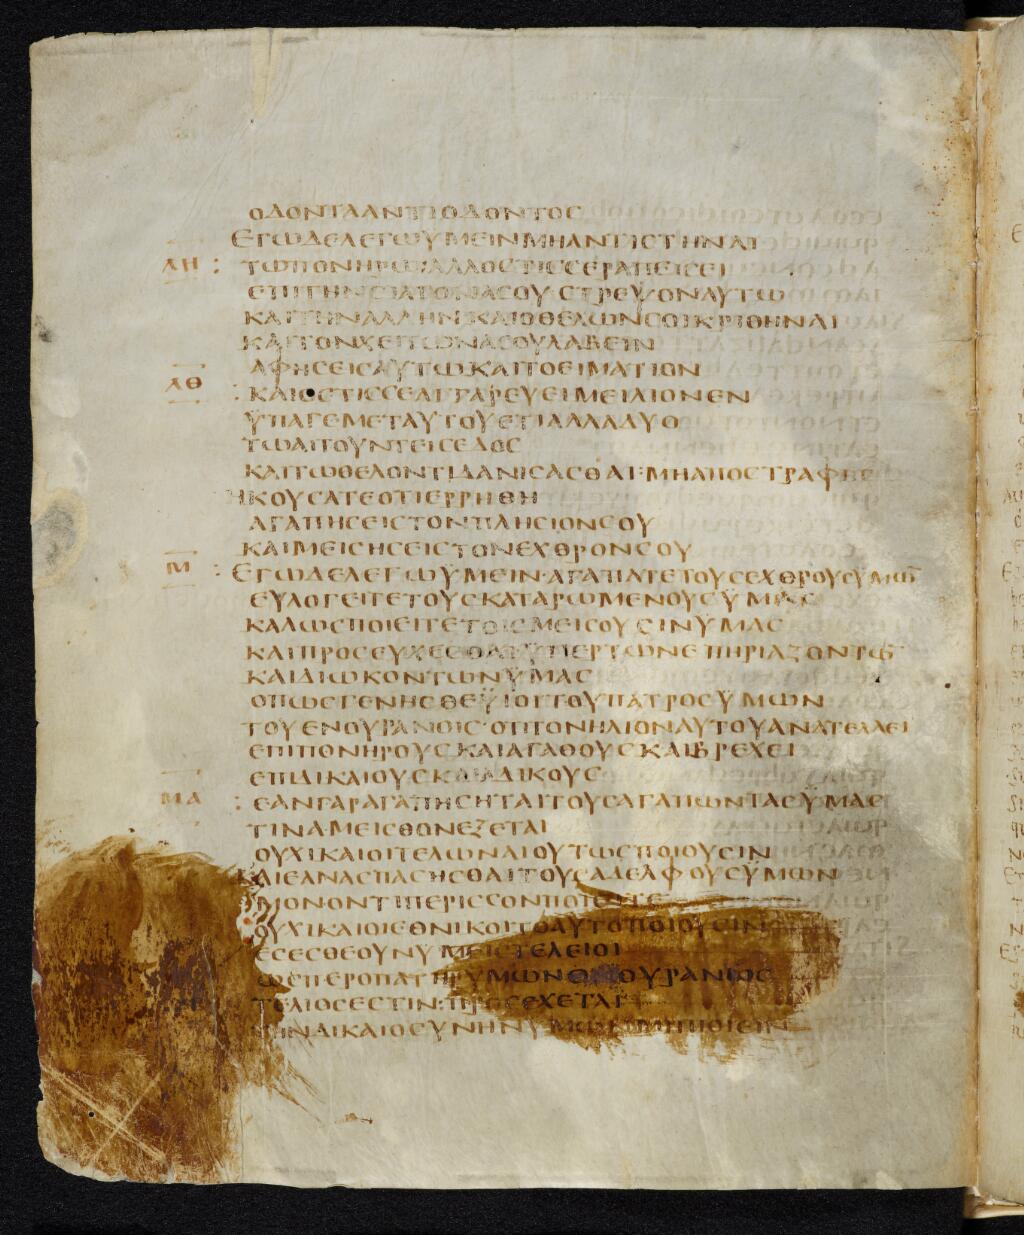 ΟΔΟΝΤΑΑΝΤΙΟΔΟΝΤΟC
ΕΓΩΔΕΛΕΓΩΫΜΕΙΝΜΗΑΝΤΙCΤΗΝΑΙ
ΛΗ : ΤΩΠΟΝΗΡΩ·ΑΛΛΟCΤΙCCΕΡΑΠΕΙCΕΙ
ΕΠΙΤΗΝCΙΑΓΟΝΑCΟΥ CΤΡΕΨΟΝΑΥΤΩ
ΚΑΙΤΗΝΑΛΛΗΝ·ΚΑΙΟΘΕΛΩΝCΟΙΚΡΙΘΗΝΑΙ
ΚΑΙΤΟΝΧΕΙΤΩΝΑCΟΥΛΑΒΕΙΝ
ΑΦΗCΕΙCΑΥΤΩ·ΚΑΙΤΟΕΙΜΑΤΙΟΝ
ΛΘ : ΚΑΙΟCΤΙCCΕΑΓΓΑΡΕΥΕΙΜΕΙΛΙΟΝΕΝ
ΫΠΑΓΕΜΕΤΑΥΤΟΥΕΤΙΑΛΛΑΔΥΟ
ΤΩΑΙΤΟΥΝΤΕΙCΕΔΟC
ΚΑΙΤΩΘΕΛΟΝΤΙΔΑΝΙCΑCΘΑΙ·ΜΗΑΠΟCΤΡΑΦΗC
ΗΚΟΥCΑΤΕΟΤΙΕΡΡΗΘΗ
ΑΓΑΠΗCΕΙCΤΟΝΠΛΗCΙΟΝCΟΥ
ΚΑΙΜΕΙCΗCΕΙCΤΟΝΕΧΘΡΟΝCΟΥ
Μ : ΕΓΩΔΕΛΕΓΩΫΜΕΙΝ·ΑΓΑΠΑΤΕΤΟΥCΕΧΘΡΟΥCΫΜΩ̅
ΕΥΛΟΓΕΙΤΕΤΟΥCΚΑΤΑΡΩΜΕΝΟΥCΫΜΑC
ΚΑΛΩCΠΟΙΕΙΤΕΤΟΙCΜΕΙCΟΥCΙΝΫΜΑC
ΚΑΙΠΡΟCΕΥΧΕCΘΑΙΫΠΕΡΤΩΝΕΠΗΡΙΑΖΟΝΤΩ̅
ΚΑΙΔΙΩΚΟΝΤΩΝΫΜΑC
ΟΠΩCΓΕΝΗCΘΕΫΙΟΙΤΟΥΠΑΤΡΟCΫΜΩΝ
ΤΟΥΕΝΟΥΡΑΝΟΙC·ΟΤΙΤΟΝΗΛΙΟΝΑΥΤΟΥΑΝΑΤΕΛΛΕΙ
ΕΠΙΠΟΝΗΡΟΥCΚΑΙΑΓΑΘΟΥCΚΑΙΒΡΕΧΕΙ
ΕΠΙΔΙΚΑΙΟΥCΚΑΙΑΔΙΚΟΥC
ΜΑ : ΕΑΝΓΑΡΑΓΑΠΗCΗΤΑΙΤΟΥCΑΓΑΠΩΝΤΑCΫΜΑC
ΤΙΝΑΜΕΙCΘΟΝΕΞΕΤΑΙ
ΟΥΧΙΚΑΙΟΙΤΕΛΩΝΑΙΟΥΤΩCΠΟΙΟΥCΙΝ
ΚΑΙΕΑΝΑCΠΑCΗCΘΑΙΤΟΥCΑΔΕΛΦΟΥCΫΜΩΝ
ΜΟΝΟΝΤΙΠΕΡΙCCΟΝΠΟΙΕΙΤΕ
ΟΥΧΙΚΑΙΟΙΕΘΝΙΚΟΙΤΟΑΥΤΟΠΟΙΟΥCΙΝ
ΕCΕCΘΕΟΥΝΥΜΕΙCΤΕΛΕΙΟΙ
ΩCΠΕΡΟΠΑΤΗΡΫΜΩΝ ΟΥΡΑΝΙΟC
ΤΕΛΙΟCΕCΤΙΝ:ΠΡΟCΕΧΕΤΑΙ
ΤΗΝΔΙΚΑΙΟCΥΝΗΝΫΜΩΝΜΗΠΟΙΕΙΝ